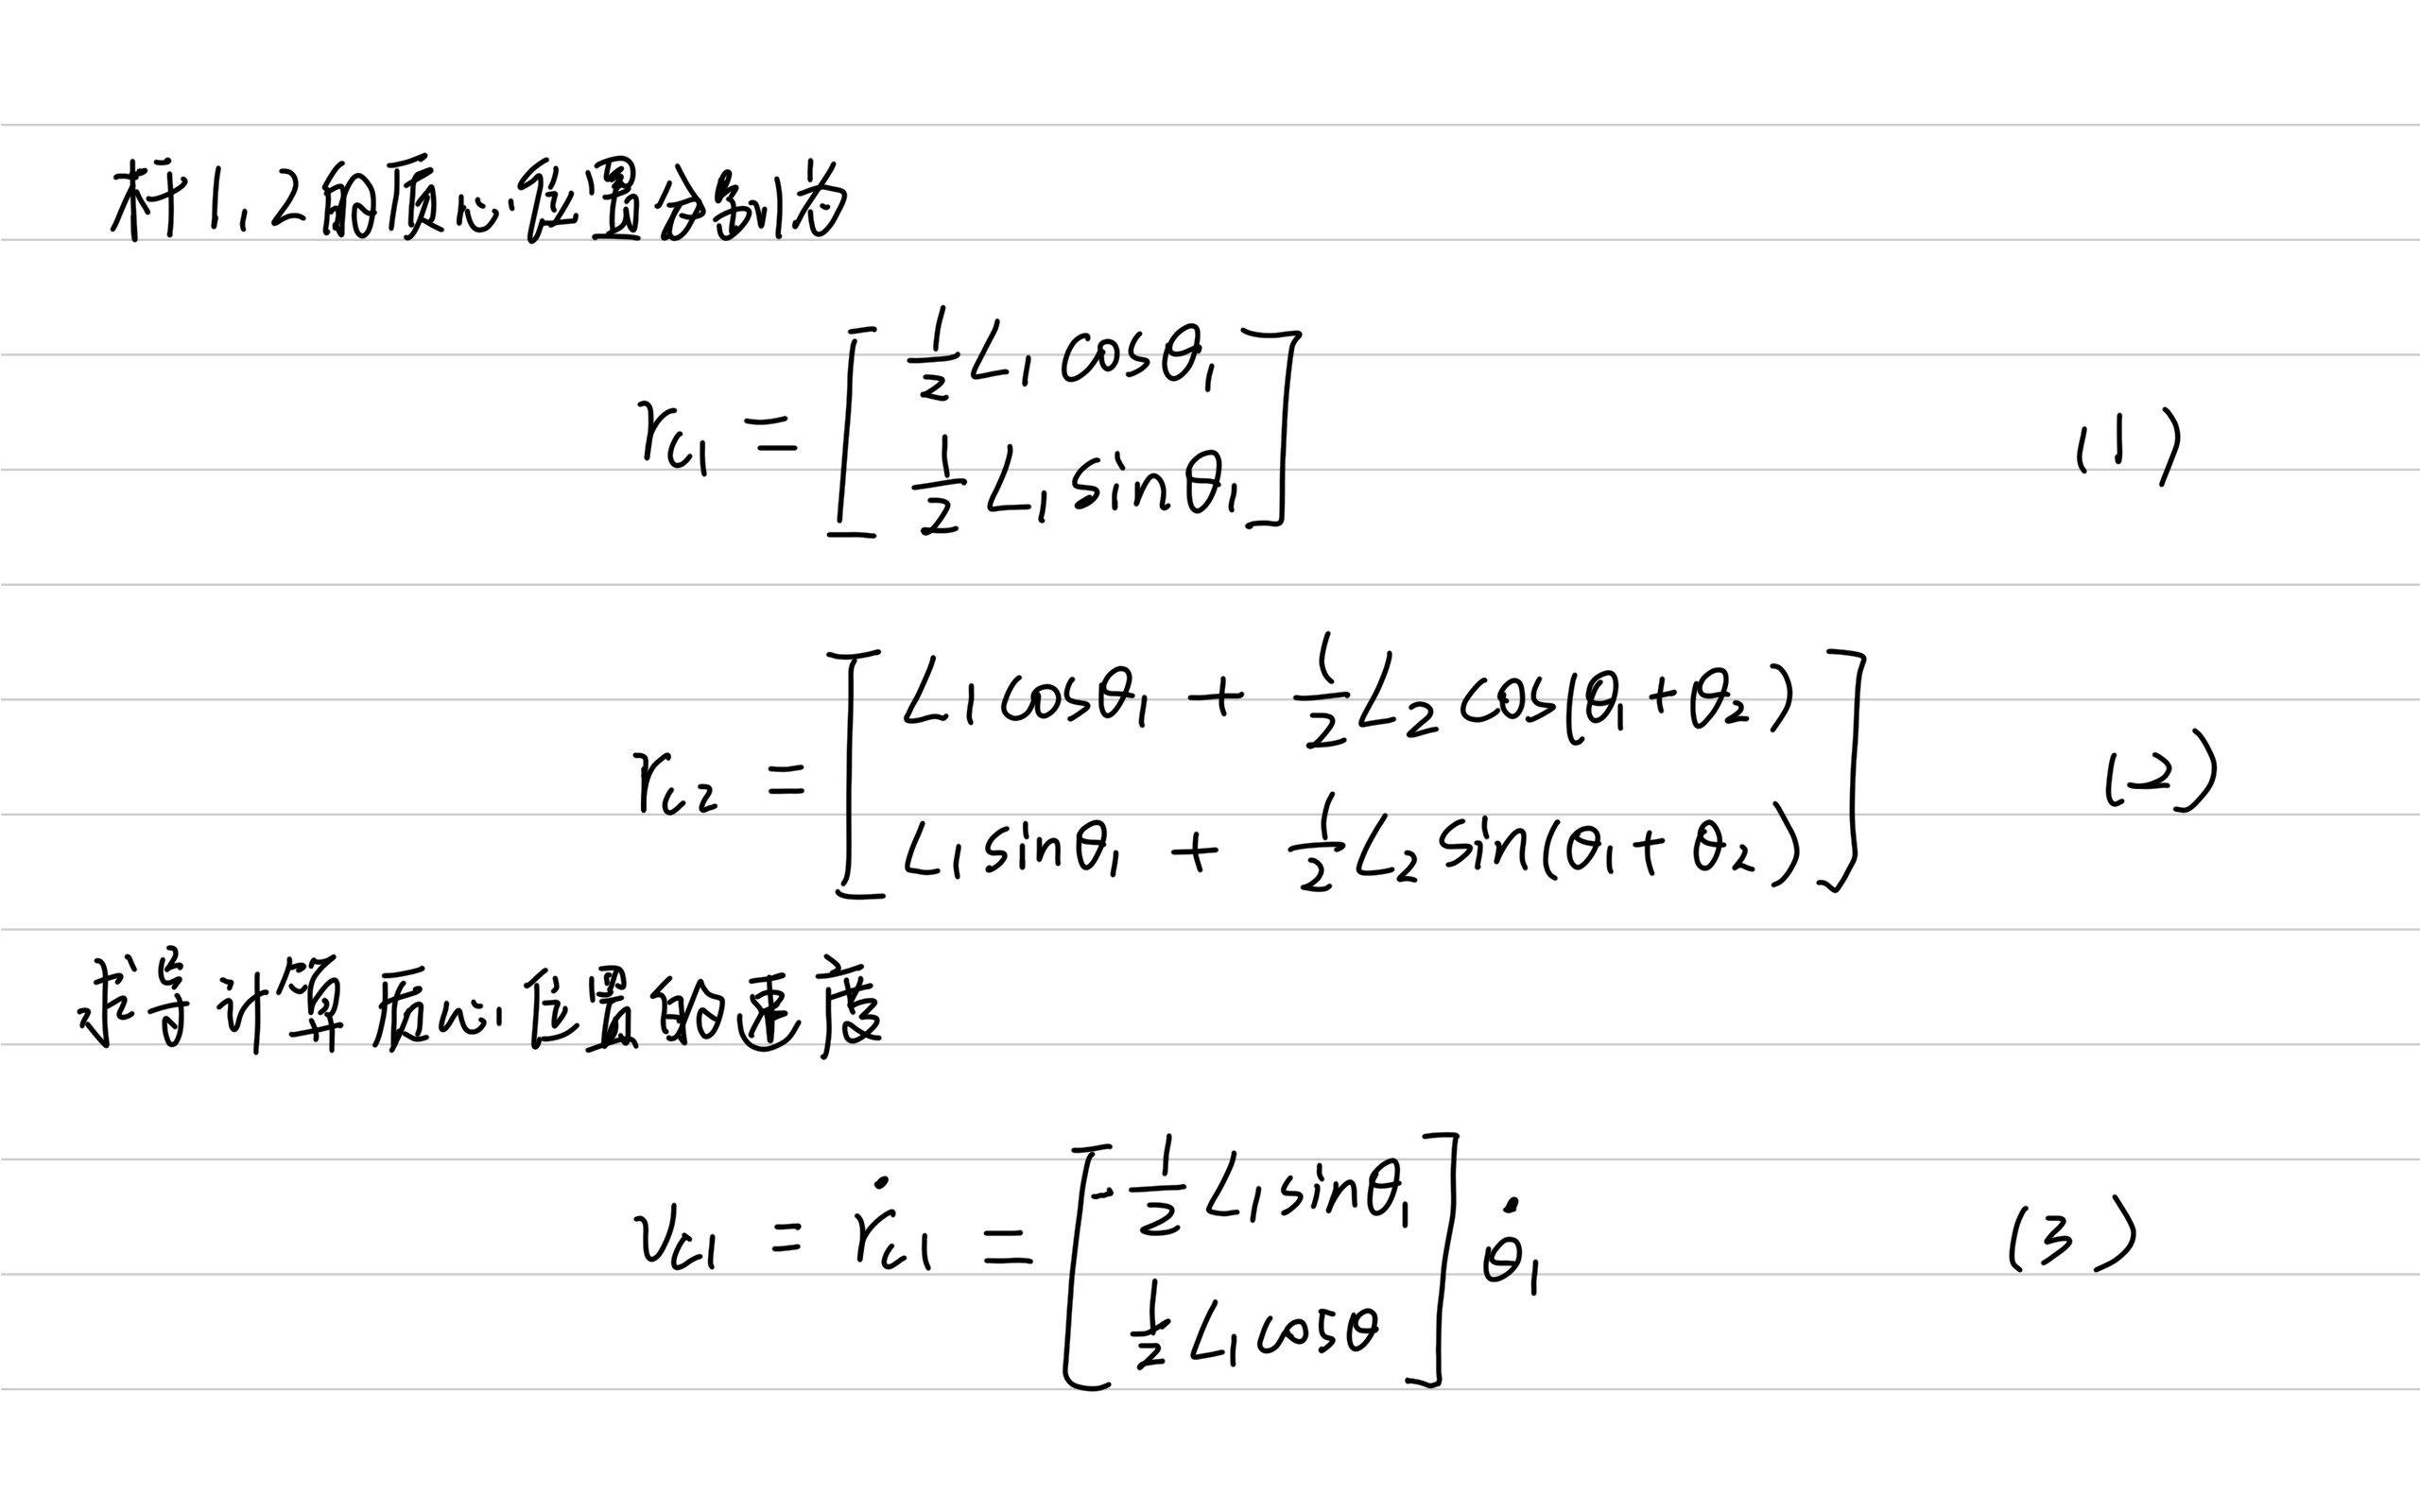 杆1,2的质心位置分别为
r_{c1} = \begin{bmatrix} \frac{1}{2} L_1 \cos\theta_1 \\ \frac{1}{2} L_1 \sin\theta_1 \end{bmatrix} (1)
r_{c2} = \begin{bmatrix} L_1 \cos\theta_1 + \frac{1}{2} L_2 \cos(\theta_1+\theta_2) \\ L_1 \sin\theta_1 + \frac{1}{2} L_2 \sin(\theta_1+\theta_2) \end{bmatrix} (2)
求导计算质心位置的速度
v_{c1} = \dot{r}_{c1} = \begin{bmatrix} -\frac{1}{2} L_1 \sin\theta_1 \\ \frac{1}{2} L_1 \cos\theta \end{bmatrix} \dot{\theta}_1 (3)